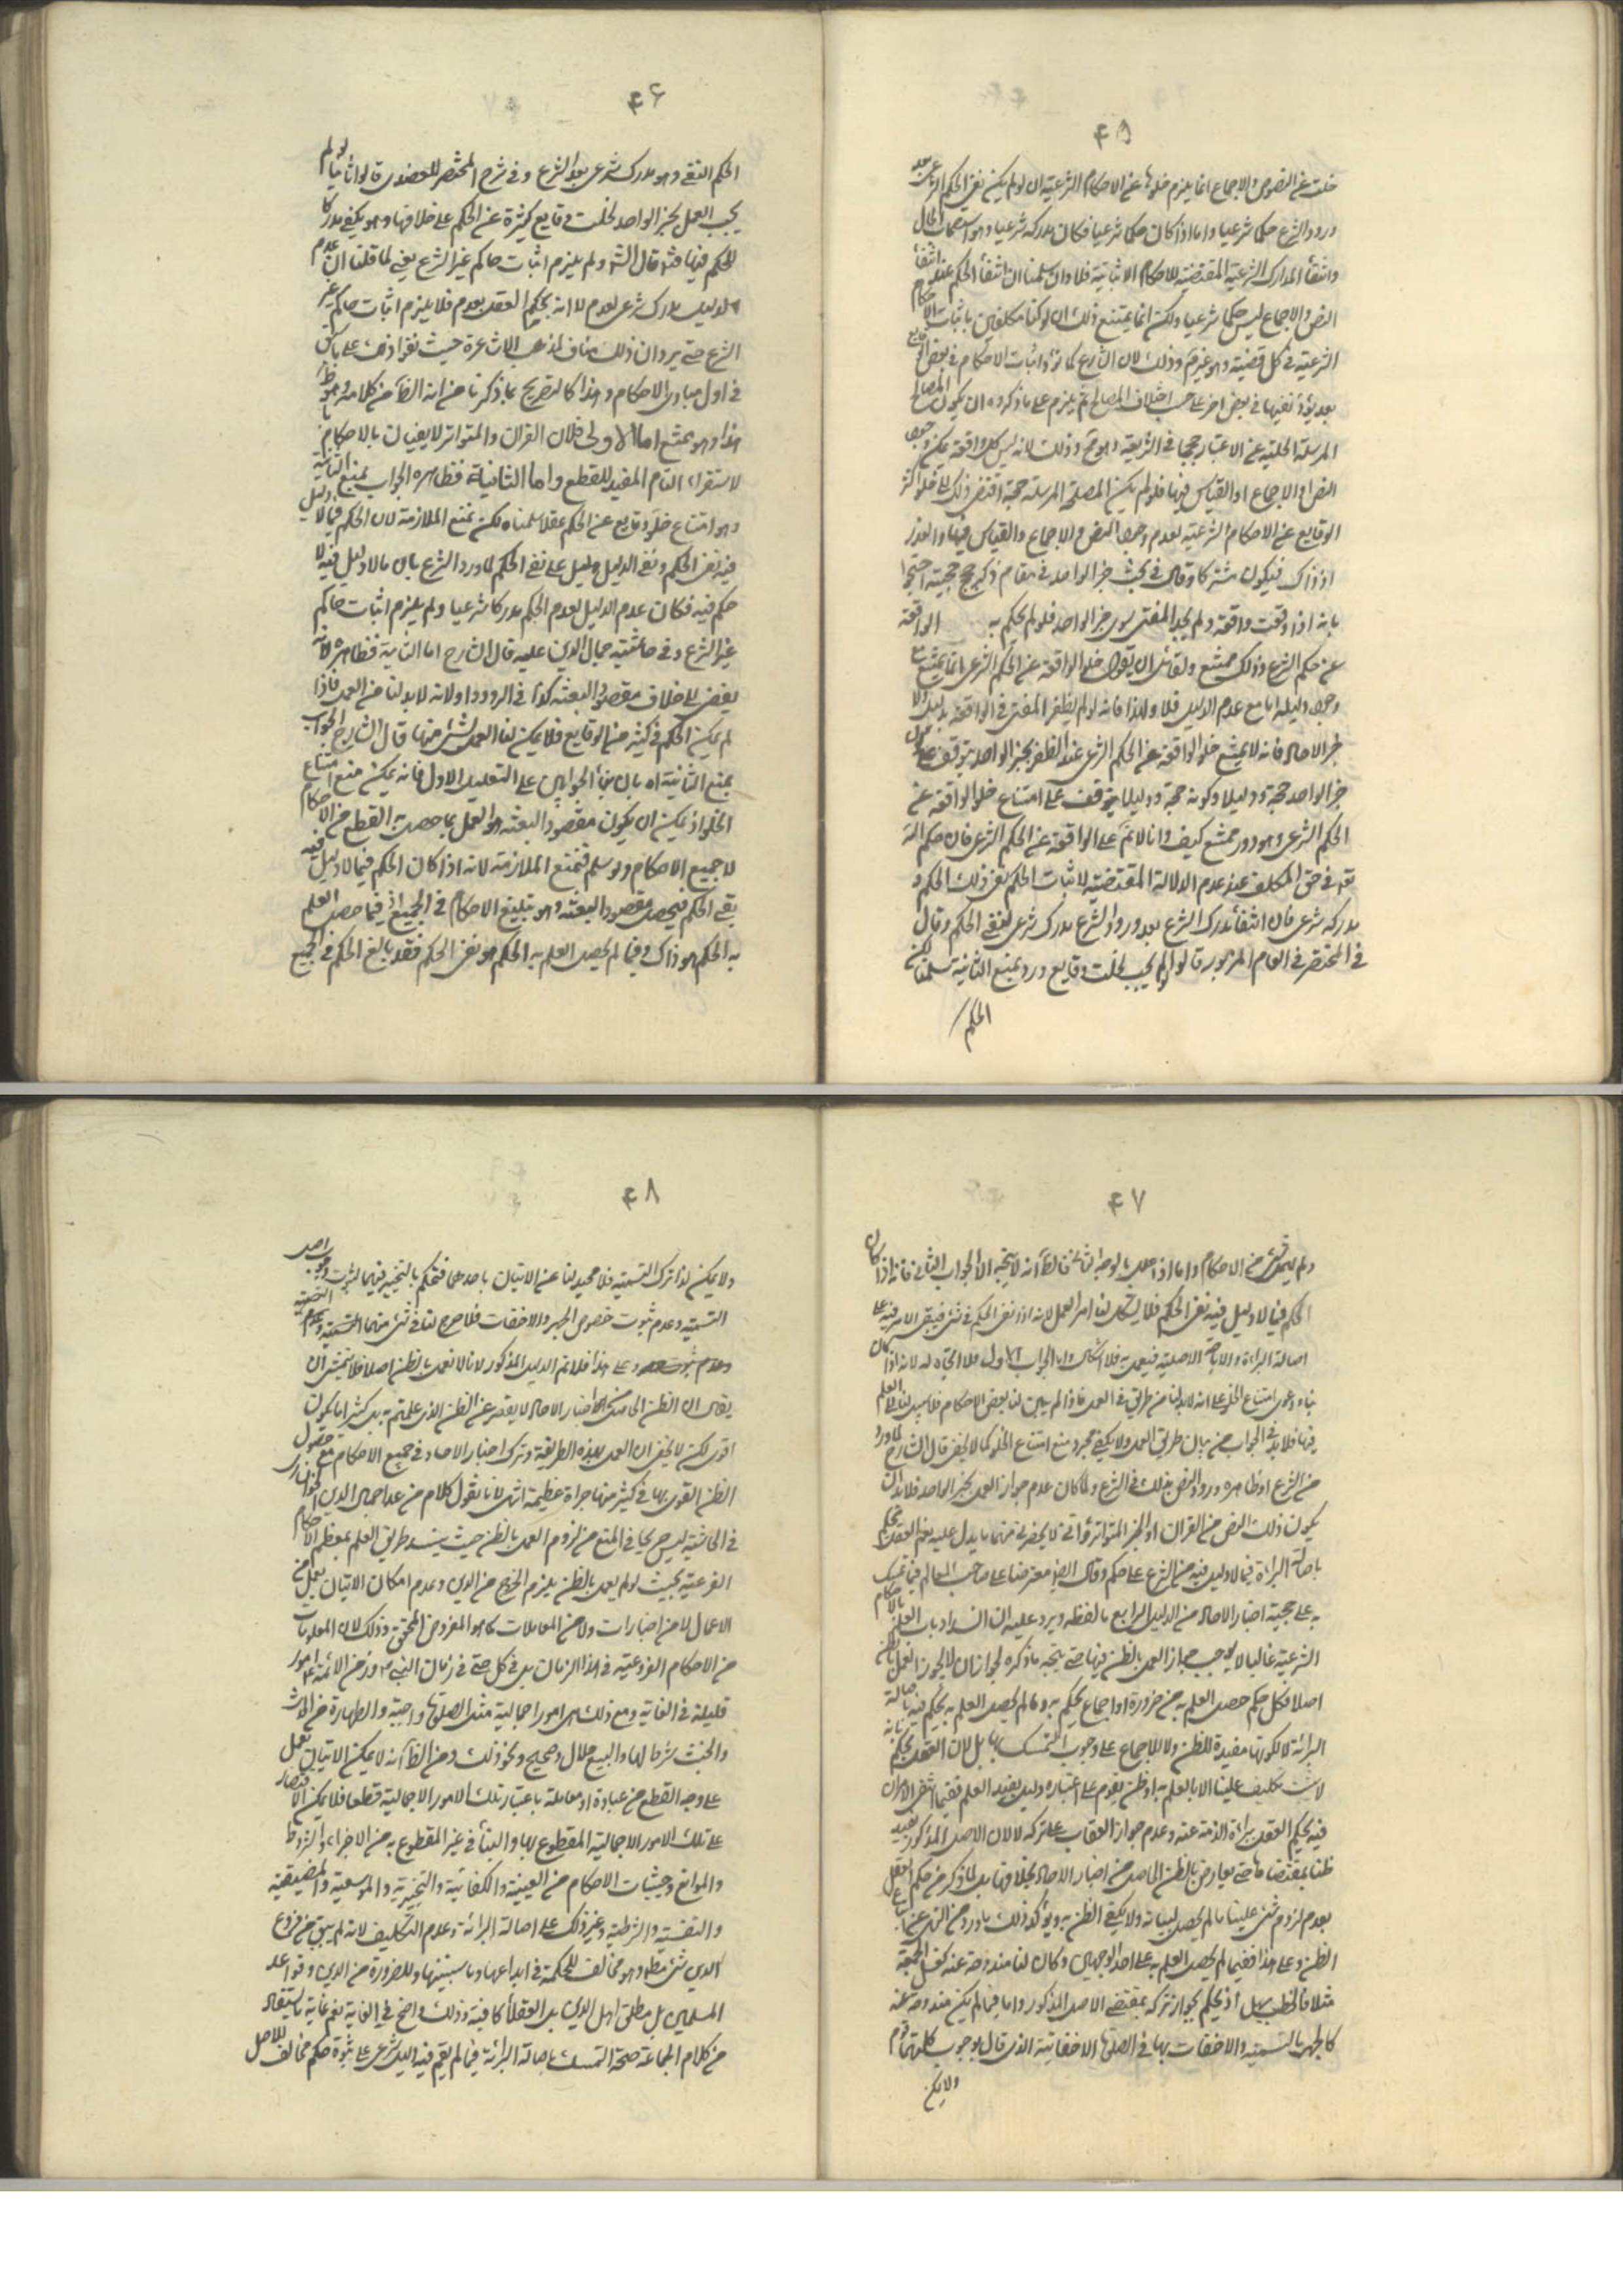 ۴۵
خلت عن النصوص والاجماع انما يلزم خلوها عن الاحكام الشرعية ان لو لم يكن نفي الحكم الشرعي بعد
ورود الشرع حكما شرعيا واما اذا كان حكما شرعيا فكان مدركه شرعيا وهو استصحاب الحال
وانتفاء المدارك الشرعية المقتضية للاحكام الاثباتية فلا وان سلمنا ان انتفاء الحكم عند انتفاء
النص والاجماع ليس حكما شرعيا ولكن انما يمتنع ذلك ان لو كنا مكلفين باثبات الاحكام
الشرعية في كل قضية وهو غير مم وذلك لان الشارع كما يرد اثبات الاحكام في بعض الوقايع
بعد يرد نفيها في بعض اخر على حسب اختلاف المصالح ثم يلزم على ما ذكروه ان يكون المصالح
المرسلة الخلية عن الاعتبار حججا في الشريعة وهو مح وذلك لانه ليس كل واقعة يمكن وجود
النص او الاجماع او القياس فيها فلو لم يكن المصلحة المرسلة حجة افضى ذلك الى خلو اكثر
الوقايع عن الاحكام الشرعية لعدم وجود النص والاجماع والقياس فيها والعذر
اذ ذاك فيكون مشتركا وقال في بحث خبر الواحد في مقام ذكر حجج حجيته احتجوا
بانه اذا وقعت واقعة ولم يجد المفتي سوى خبر الواحد فلو لم يحكم به الواقعة
عن حكم الشرع وذلك ممتنع ولقائل ان يقول خلو الواقعة عن الحكم الشرعي انما يمتنع مع
وجود دليله اما مع عدم الدليل فلا ولهذا فانه لو لم يظفر المفتي في الواقعة بدليل ولا
خبر الاحاد فانه لا يمتنع خلو الواقعة عن الحكم الشرعي عند الظفر بخبر الواحد يتوقف على كون
خبر الواحد حجة ودليلا وكونه حجة ودليلا يتوقف على امتناع خلو الواقعة عن
الحكم الشرعي وهو دور ممتنع كيف وانا لا نم على الواقعة عن الحكم الشرعي فان حكم الله
تع في حق المكلف عند عدم الادلة المقتضية لاثبات الحكم نفي ذلك الحكم و
مدركه شرعي فان انتفاء مدرك الشرع بعد ورود الشرع مدرك شرعي لنفي الحكم وقال
في المختصر في المقام المزبور قالوا لو لم يجب لخلت وقايع ورد بمنع الثانية سلمنا لكن
الحكم
۴۶
الحكم النفي وهو مدرك شرعي بعد الشرع وفي شرح المختصر للعضدي قالوا ثانيا لو لم
يجب العمل بخبر الواحد لخلت وقايع كثيرة عن الحكم على خلافها وهو يكفي مدركا
للحكم فيها قال الش ولم يلزم اثبات حاكم غير الشرع يعني لما قلنا ان عدم
الدليل مدرك شرعي لعدم لا انه بحكم العقل بعدم فلا يلزم اثبات حاكم غير
الشرع حتى يرد ان ذلك مناف لمذهب الاشاعرة حيث نفوا ذلك على ما سبق
في اول مبادي الاحكام وهذا كالتصريح بما ذكرنا من انه الظاهر من كلامه وهو ظ
هذا وهو يمتنع اما الاولى فلان القران والمتواتر لا يفيان بالاحكام با
لاستقراء التام المفيد للقطع واما الثانية فظاهره الجواب بمنع الثانية
وهو امتناع خلو وقايع عن الحكم عقلا سلمناه لكن نمنع الملازمة لان الحكم فيما لا دليل
فيه نفي الحكم ونفي الدليل دليل على نفي الحكم لما ورد الشرع بان ما لا دليل فيه لا
حكم فيه فكان عدم الدليل لعدم الحكم مدركا شرعيا ولم يلزم اثبات حاكم
غير الشرع وفي حاشية جمال الدين عليه قال الشارح اما الثانية فظاهرة لانه
يفضي الى خلاف مقصود البعثة كذا في الردود اولانه لا بد لنا من العمل فاذا
لم يكن الحكم في كثير من الوقايع فلا يمكن لنا العمل بشئ منها قال الشارح الجواب
بمنع الثانية اه بان بناء الجوابين على التعليل الاول فانه يمكن منع امتناع
الخلو اذ يمكن ان يكون مقصود البعثة هو العمل بما حصل به القطع من الاحكام
لا جميع الاحكام ولو سلم فنمنع الملازمة لانه اذا كان الحكم فيما لا دليل فيه
نفي الحكم فيحصل مقصود البعثة وهو تبليغ الاحكام في الجميع اذ فيما حصل العلم
به الحكم هو ذاك وفيما لم يحصل العلم به الحكم هو نفي الحكم فقد بالغ الحكم في الجميع
۴۷
ولم يبق شئ من الاحكام واما اذا علل بالوجه الثاني فالظ انه لا يتجه الا الجواب الثاني فانه اذا كان
الحكم فيما لا دليل فيه نفي الحكم فلا يشكل لنا امر العمل لانه اذا نفي الحكم في شئ فيبقى الامر فيه على
اصالة البراءة والاباحة الاصلية فيعمل به فلا اشكال واما الجواب الاول فلا اتجاه له لانه اذا كان
بناء دعوى امتناع الخلو على انه لا بد لنا من طريق في العمل فاذا لم يبين لنا بعض الاحكام فلا سبيل لنا الى العلم
فيها فلا بد في الجواب من بيان طريق العمل ولا يكفي مجرد منع امتناع الخلو كما لا يخفى قال الشارح لما ورد
من الشرع اه ظاهره ورود النص بذلك في الشرع ولما كان عدم جواز العمل بخبر الواحد فلا بد ان
يكون ذلك النص من القران او الخبر المتواتر وانى لا يحضرني منهما ما يدل عليه نعم العقل يحكم
باصالة البراءة فيما لا دليل فيه من الشرع على حكم وقال ايضا معترضا على صاحب المعالم فيما تمسك
به على حجية اخبار الاحاد من الدليل الرابع ما لفظه ويرد عليه ان انسداد باب العلم بالاحكام
الشرعية غالبا لا يوجب جواز العمل بالظن فيها حتى يتجه ما ذكره لجواز ان لا يجوز العمل بالظن
اصلا فكل حكم حصل العلم به من ضرورة او اجماع يحكم به وما لم يحصل العلم به يحكم فيه باصالة
البرائة لا لكونها مفيدة للظن ولا للاجماع على وجوب التمسك بها بل لان العقل يحكم بانه
لا يثبت تكليف علينا الا بالعلم به او ظن يقوم على اعتباره دليل يفيد العلم فقيما انتفى الامران
فيه يحكم العقل ببراءة الذمة عنه وعدم جواز العقاب على تركه لا لان الاصل المذكور يفيد
ظنا بمقتضاها حتى يعارض بالظن الحاصل من اخبار الاحاد بخلافها بل لما ذكر من حكم العقل
بعدم لزوم شئ علينا ما لم يحصل لبيانه ولا يكفي الظن به ويؤكد ذلك ما ورد من النهي عن اتباع
الظن وعلى هذا ففيما لم يحصل العلم به على احد الوجهين وكان لنا مندوحة عنه كغسل الجمعة
مثلا فالخطب سهل اذ يحكم بجواز تركه بمقتضى الاصل المذكور واما فيما لم يكن مندوحة عنه
كالجهر بالتسمية والاخفات بها في الصلوة الاخفاتية الذي قال بوجوب كل منهما قوم
ولا يمكن
۴۸
ولا يمكن لنا ترك التسمية فلا محيد لنا عن الاتيان باحدهما فنحكم بالتخيير فيهما لثبوت وجوب اصل
التسمية وعدم ثبوت خصوص الجهر والاخفات فلا حرج لنا في شئ منهما
وعلى هذا فلا يتم الدليل المذكور لانا لا نعمل بالظن اصلا فلا يتمشى ان
يقال ان الظن الحاصل من اخبار الاحاد لا يقصر عن الظن الذي علمتم به بل كثيرا ما يكون
اقوى لكن لا يخفى ان العمل بهذه الطريقة وترك اخبار الاحاد في جميع الاحكام مع حصول
الظن القوي بها في كثير منها جراة عظيمة انتهى لانا نقول كلام من عدا جمال الدين
في الحاشية ليس صريحا في المنع من لزوم العمل بالظن حيث ينسد طريق العلم بمعظم الاحكام
الفرعية بحيث لو لم يعمل بالظن يلزم الخروج من الدين وعدم امكان الاتيان بعمل من
الاعمال لا من العبادات ولا من المعاملات كما هو المفروض المحقق وذلك لان المعلومات
من الاحكام الفرعية في هذا الزمان بل في كل حتى في زمان النبي ص وزمن الائمة ع امور
قليلة في الغاية ومع ذلك هي امورا اجمالية مثل الصلوة واجبة والطهارة من الحدث
والخبث شرط لها والبيع حلال وصحيح ونحو ذلك ومن الظاهر انه لا يمكن الاتيان بعمل
على وجه القطع من عبادة او معاملة باعتبار تلك الامور الاجمالية قطعا فلا يمكن الاقتصار
على تلك الامور الاجمالية المقطوع بها والبناء في غير المقطوع به من الاجزاء والشروط
والموانع وحيثيات الاحكام من العينية والكفائية والتخييرية والموسعية والمضيقية
والنفسية والشرطية وغير ذلك على اصالة البرائة وعدم التكليف لانه لم يبق من فروع
الدين شئ مطلوب وهو مخالف للحكمة في ابداعها وتاسيسها وللضرورة من الدين وقواعد
المسلمين بل مطلق اهل الدين بل العقلاء كافة وذلك واضح في الغاية نعم غاية ما يستفاد
من كلام الجماعة صحة التمسك باصالة البرائة فيما لم يقم فيه دليل شرعي على ثبوت حكم مخالف للاصل